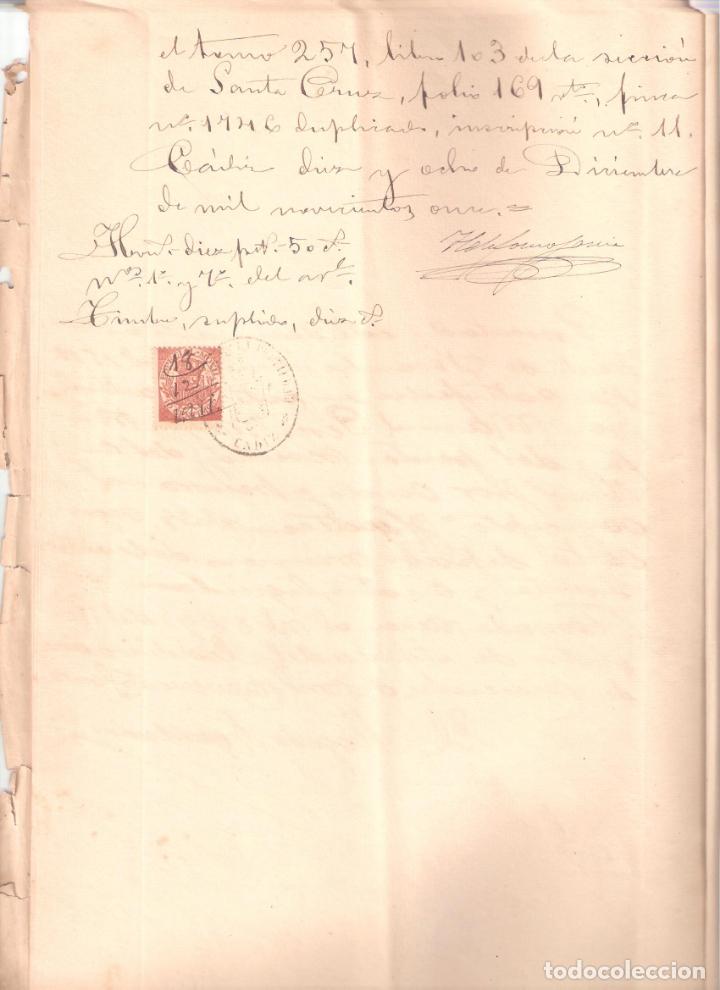 el tomo 257, libro 103 de la sección
de Santa Cruz, folio 169 vto, finca
nº 1746 duplicado, inscripción nº 11.
Cádiz diez y ocho de Diciembre
de mil novecientos once.=
Honos. diez pts. 50 cs.
Nos. 1º y 7º del arl.
Timbre, suplido, diez cs.
18
12
CADIZ
todocoleccion